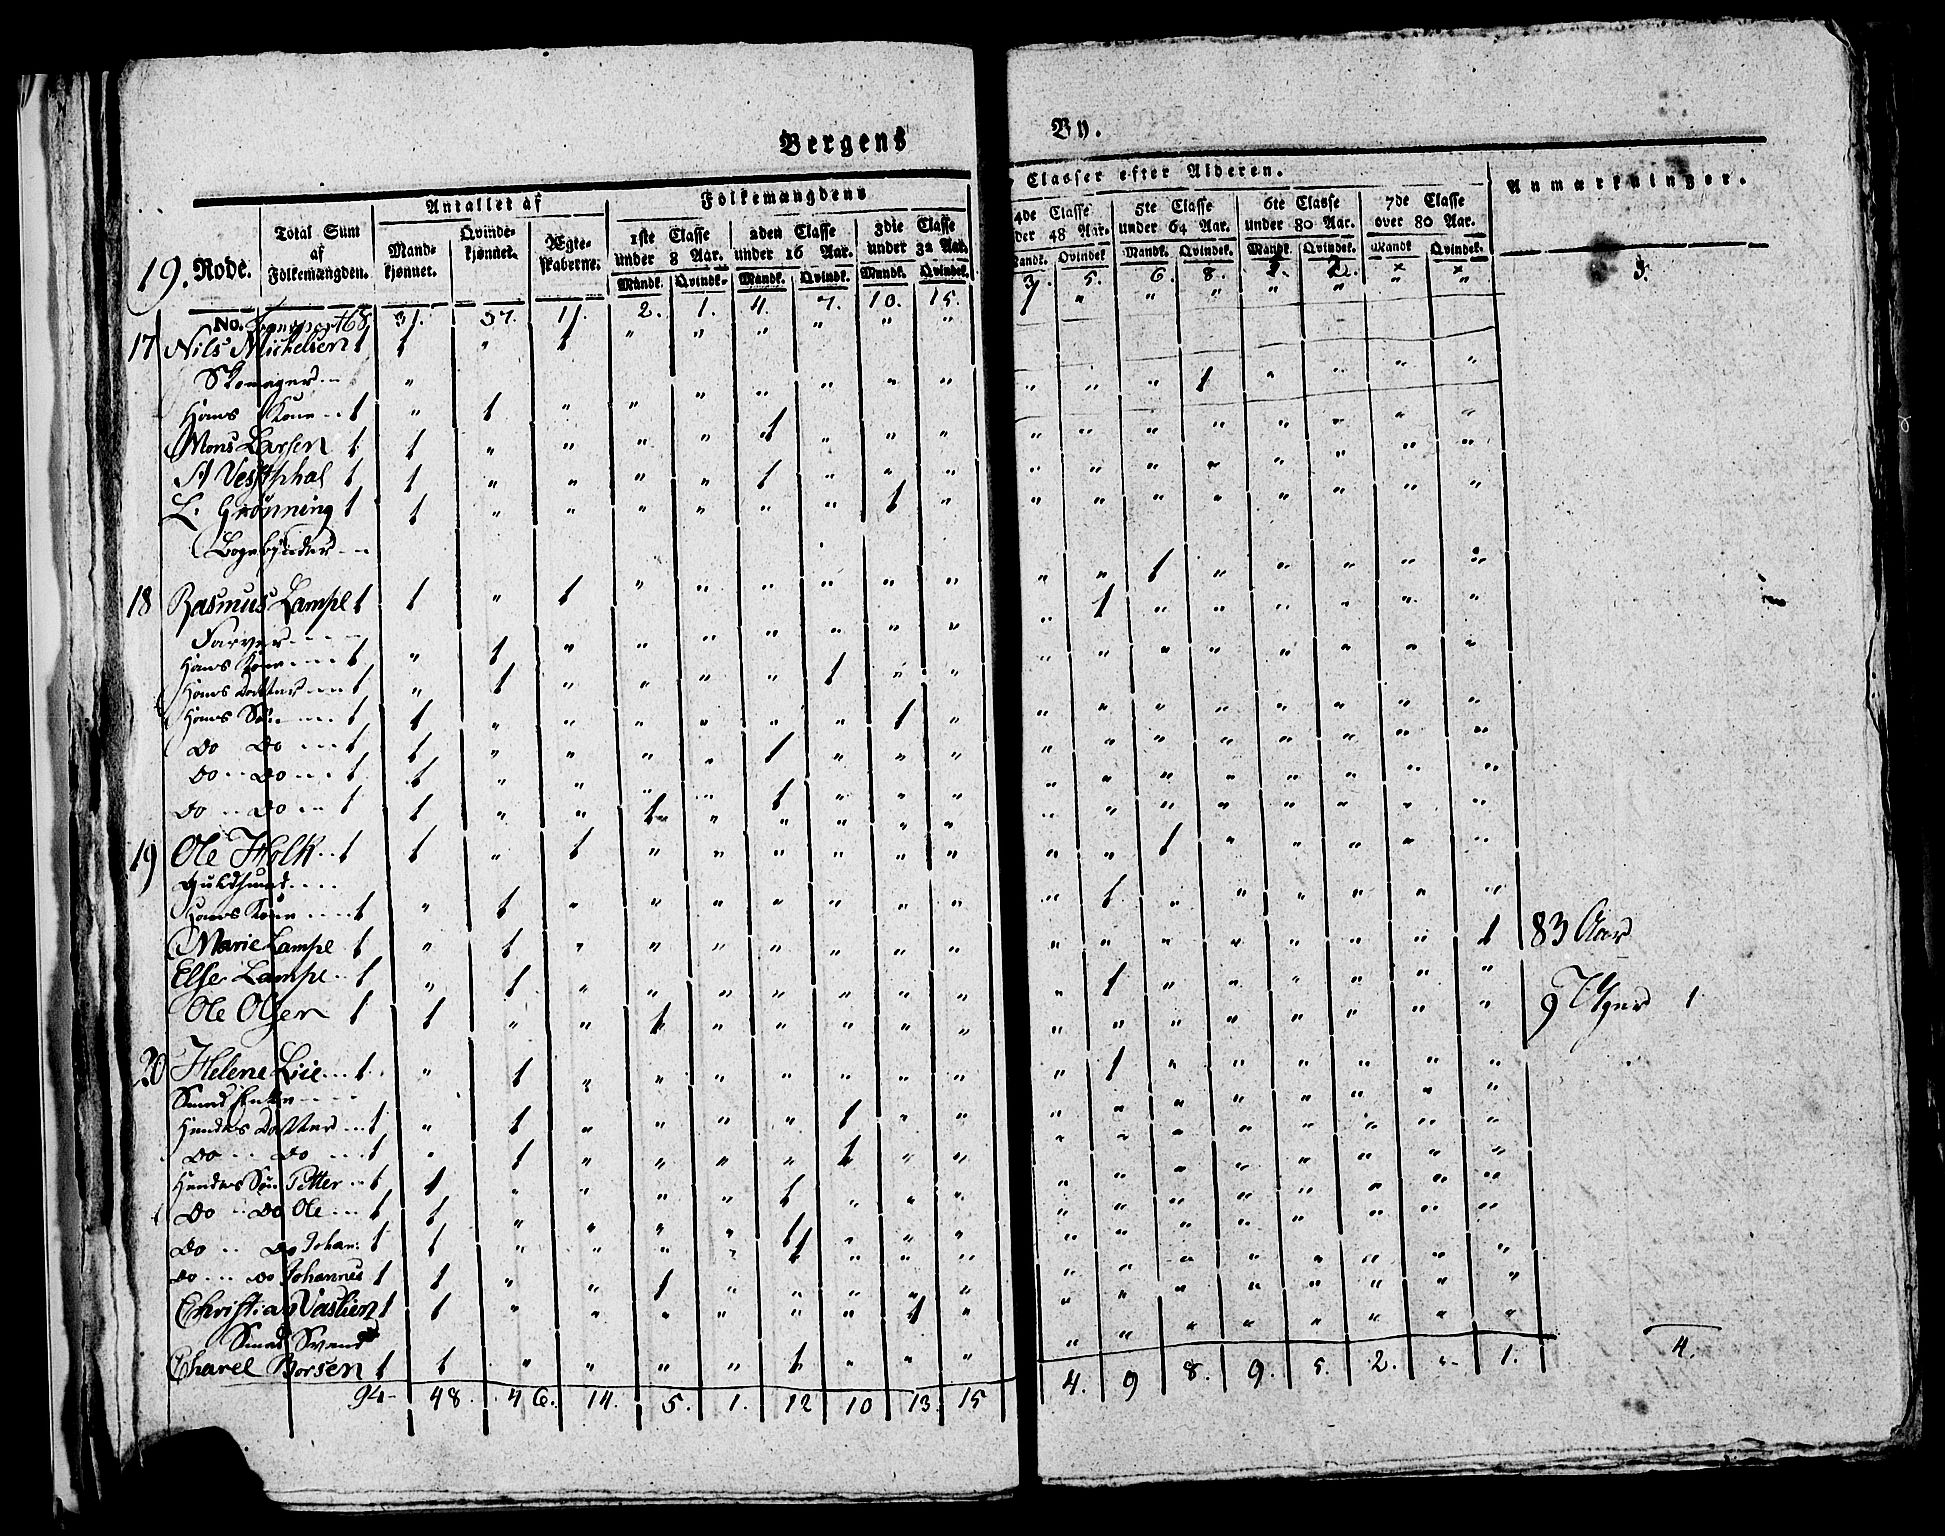 Bergens By.
19. Rode.
Total Sum af Folkemængden.
Antallet af
Mandkjønnet. Qvindekjønnet. Ægteskaberne.
Folkemængdens Classer efter Alderen.
1ste Classe under 8 Aar. 2den Classe under 16 Aar. 3die Classe under 32 Aar. 4de Classe under 48 Aar. 5te Classe under 64 Aar. 6te Classe under 80 Aar. 7de Classe over 80 Aar.
Anmærkninger.
Mandk. Qvindek. Mandk. Qvindek. Mandk. Qvindek. Mandk. Qvindek. Mandk. Qvindek. Mandk. Qvindek. Mandk. Qvindek.
No. Transport 68 31. 37. 11. 2. 1. 4. 7. 10. 15. 3 5. 6. 8. 2. × × 3.
17 Nils Michelsen 1 1 " 1 " " " " " " 1 " " " " "
Skomager
Hans Kone 1 " 1 " " " " " " " " " " 1 " " " "
Mons Larsen 1 1 " " " " 1 " " " " " " " " " " "
A Vestphal 1 1 " " " " 1 " " " " " " " " " " "
L. Grønning 1 1 " " " " " " 1 " " " " " " " " "
Bogebinder
18 Rasmus Lampe 1 1 " 1 " " " " " " " " 1 " " " " "
Farver
Hans Kone 1 " 1 " " " " " " " " 1 " " " " " "
Hans Datter 1 " 1 " " " " 1 " " " " " " " " " "
Hans Søn 1 1 " " " " " " 1 " " " " " " " " "
Do Do 1 1 " " " " 1 " " " " " " " " " " "
Do Do 1 1 " " " " 1 " " " " " " " " " " "
Do Do 1 1 " " 1 " " " " " " " " " " " " "
19 Ole Holk 1 1 " 1 " " " " " " " " 1 " " " " "
Guldsmed
Hans Kone 1 " 1 " " " " " " " " 1 " " " " " "
Marie Lampe 1 " 1 " " " " " " " " " " " " " " 1 83 Aar
Else Lampe 1 " 1 " " " " " " " " 1 " " " " " "
Ole Olsen 1 1 " " 1 " " " " " " " " " " " " " 9 Uger 1
20 Helene Lie 1 " 1 " " " " " " " " 1 " " " " " "
Smed Enke
Hendes Datter 1 " 1 " " " " 1 " " " " " " " " " "
Do Do 1 " 1 " " " " 1 " " " " " " " " " "
Hendes Søn Petter 1 1 " " " " 1 " " " " " " " " " " "
Do Do Ole 1 1 " " " " 1 " " " " " " " " " " "
Do Do Johan: 1 1 " " " " 1 " " " " " " " " " " "
Do Do Johannes 1 1 " " 1 " " " " " " " " " " " " "
Christian 1 1 " " " " " " 1 " " " " " " " " "
Smed Svend
Borsen 1 1 " " " " 1 " " " " " " " " " " "
94 48. 46. 14. 5. 1. 12 10 13. 15 4. 9 8. 9. 5. 2. " 1. 4.